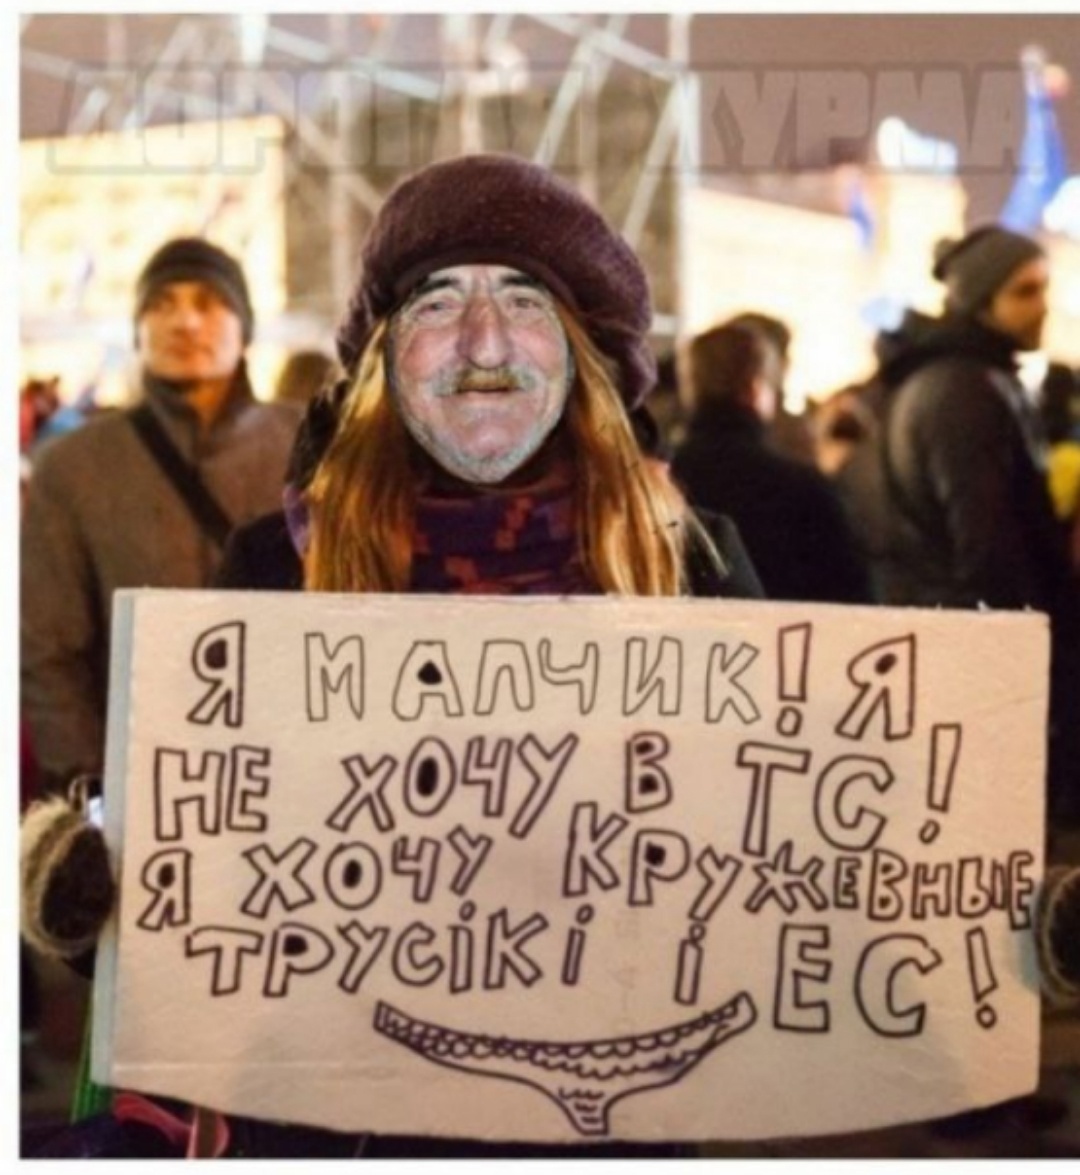 ДОРОГАЯ ХУРМА
Я МАЛЧИК! Я
НЕ ХОЧУ В ТС!
Я ХОЧУ КРУЖЕВНЫЕ
ТРУСІКІ і ЕС!